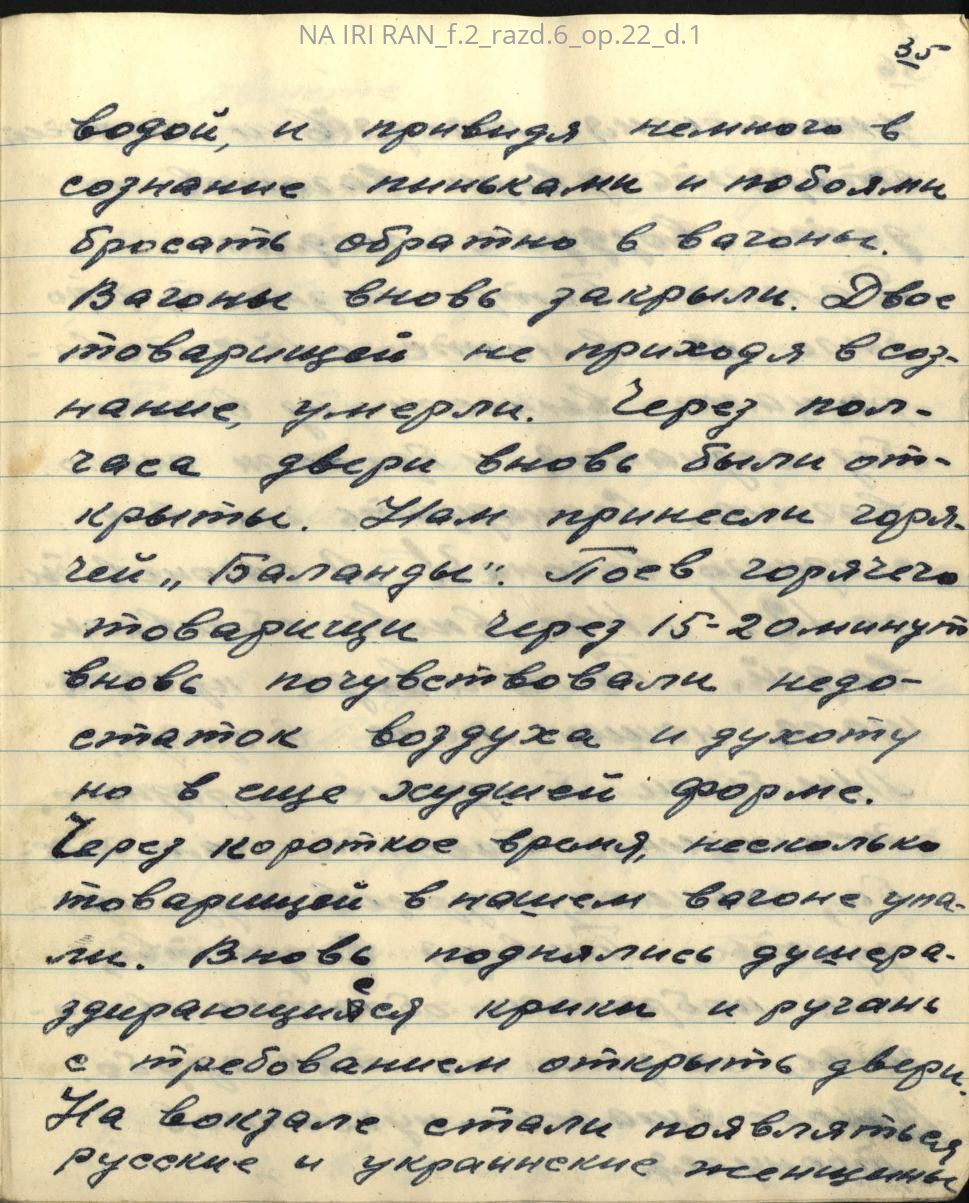 NA IRI RAN_f.2_razd.6_op.22_d.1
35
водой, и привидя немного в
сознание пиньками и побоями
бросать обратно в вагоны.
Вагоны вновь закрыли. Двое
товарищей не приходя в соз-
нание, умерли. Через пол-
часа двери вновь были от-
крыты. Нам принесли горя-
чей „Баланды“. Поев горячего
товарищи через 15-20 минут
вновь почувствовали недо-
статок воздуха и духоту
но в еще худшей форме.
Через короткое время, несколько
товарищей в нашем вагоне упа-
ли. Вновь поднялись душера-
здирающиеся крики и ругань
с требованием открыть двери.
На вокзале стали появляться
русские и украинские женщины